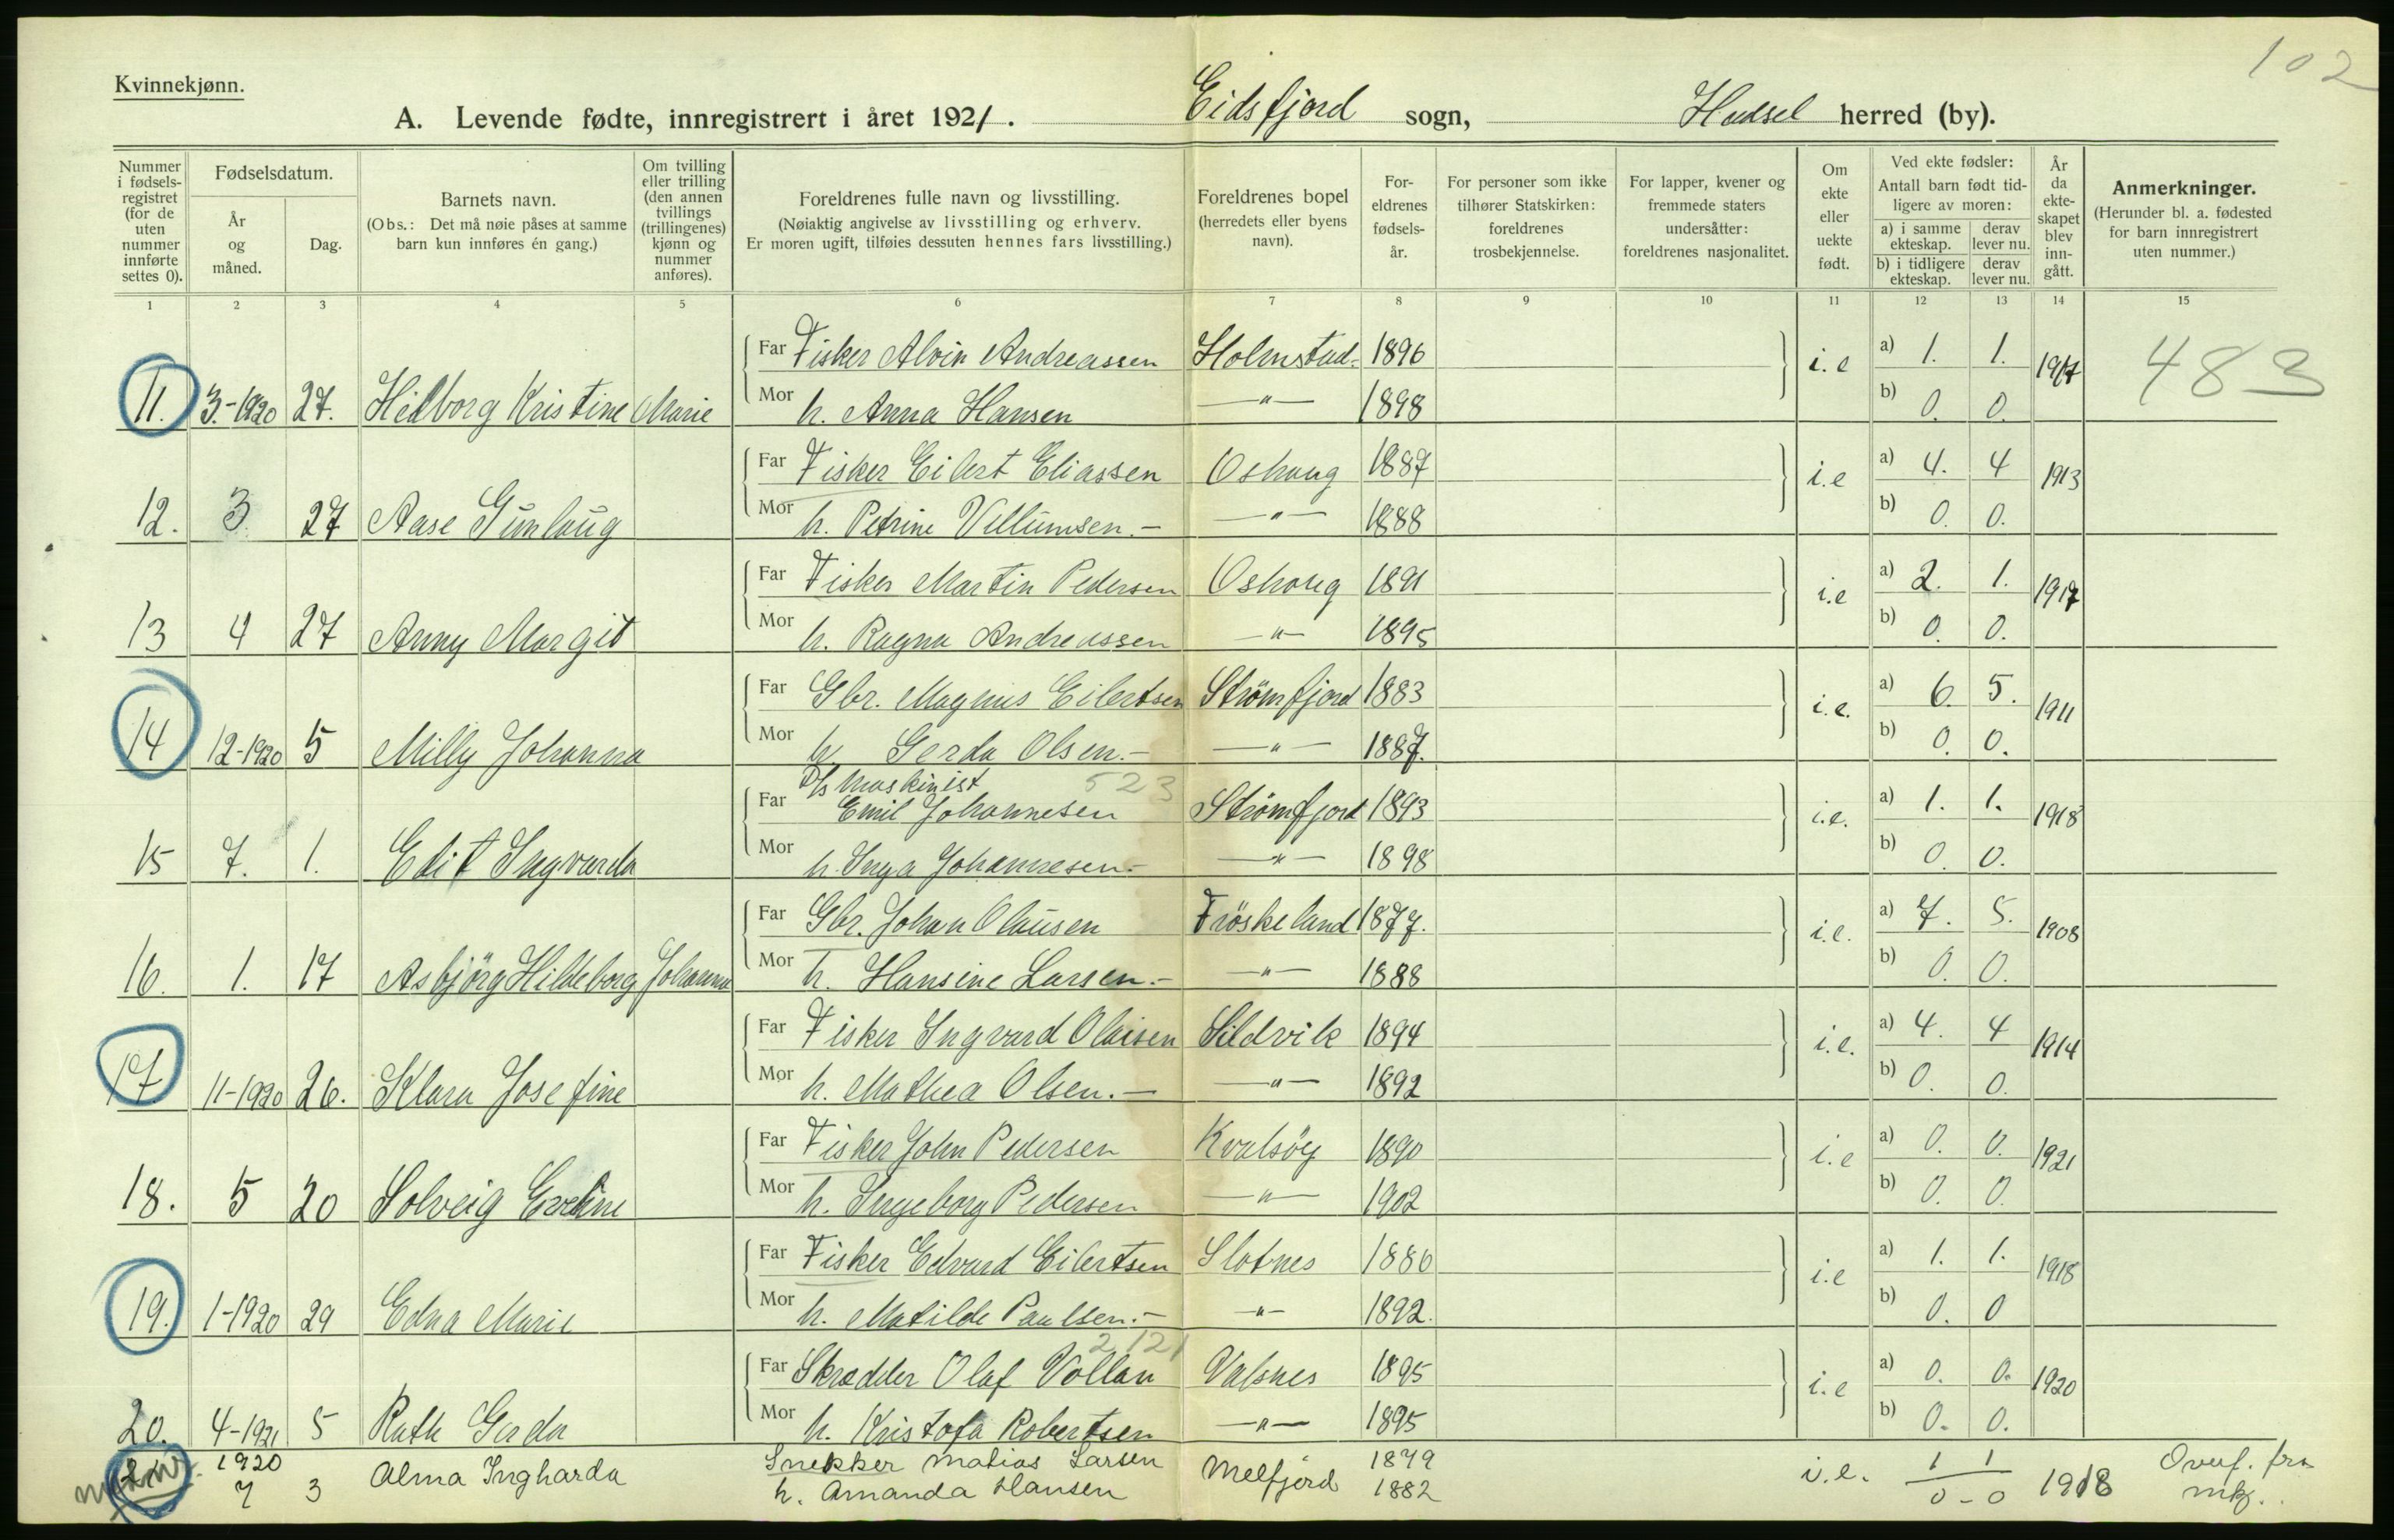 102
Kvinnekjønn.
A. Levende fødte, innregistrert i året 1921. Eidsfjord sogn, Hadsel herred (by).
Nummer i fødselsregistret (for de uten nummer innførte settes 0).
Fødselsdatum.
År og måned.
Dag.
Barnets navn.
(Obs.: Det må nøie påses at samme barn kun innføres én gang.)
Om tvilling eller trilling (den annen tvillings (trillingenes) kjønn og nummer anføres).
Foreldrenes fulle navn og livsstilling.
(Nøiaktig angivelse av livsstilling og erhverv.
Er moren ugift, tilføies dessuten hennes fars livsstilling.)
Foreldrenes bopel (herredets eller byens navn).
Foreldrenes fødselsår.
For personer som ikke tilhører Statskirken: foreldrenes trosbekjennelse.
For lapper, kvener og fremmede staters undersåtter: foreldrenes nasjonalitet.
Om ekte eller uekte født.
Ved ekte fødsler: Antall barn født tidligere av moren:
a) i samme ekteskap. derav lever nu.
b) i tidligere ekteskap. derav lever nu.
År da ekteskapet blev inngått.
Anmerkninger.
(Herunder bl. a. fødested for barn innregistrert uten nummer.)
1 2 3 4 5 6 7 8 9 10 11 12 13 14 15
Far Fisker Alvin Andreassen Holmstad 1896 i.e a) 1. 1. 1917 483
11. 3.-1920 27. Hilborg Kristine Marie Mor h. Anna Hansen —"— 1898 b) 0. 0.
Far Fisker Eilert Eliassen Oshaug 1887 i.e a) 4. 4 1913
12. 3. 27 Aase Gunlaug Mor h. Petrine Villumsen.— —"— 1888 b) 0. 0.
Far Fisker Martin Pedersen Oshaug 1891 i.e a) 2. 1. 1917
13 4 27 Anny Margit Mor h. Ragna Andreassen —"— 1895 b) 0. 0.
Far Gbr. Magnus Eilertsen Strömfjord 1883 i.e. a) 6. 5. 1911
14 12-1920 5 Milly Johanna Mor h. Gerda Olsen.— —"— 1887. b) 0. 0.
D/s Maskinist 523
Far Emil Johannesen Strömfjord 1893 i.e. a) 1. 1. 1918
15 7. 1. Edit Ingvarda Mor h. Inga Johannesen.— —"— 1898 b) 0. 0.
Far Gbr. Johan Olausen Fröskeland 1877. i.e. a) 7. 5. 1908
16. 1. 17 Asbjörg Hildeborg Johanna Mor h. Hansine Larsen.— —"— 1888 b) 0. 0.
Far Fisker Ingvard Olaisen Sildvik 1894 i.e. a) 4. 4 1914
17. 11-1920 26. Klara Josefine Mor h. Mathea Olsen.— —"— 1892 b) 0. 0.
Far Fisker John Pedersen Kvalsöy 1890 i.e a) 0. 0. 1921
18. 5 20 Solveig Eveline Mor h. Ingeborg Pedersen —"— 1902 b) 0. 0.
Far Fisker Edvard Eilertsen Slotnes 1886 i.e a) 1. 1. 1918
19. 1-1920 29 Edna Marie Mor h. Matilde Paulsen.— —"— 1892. b) 0. 0
2121
Far Skrædder Olaf Vollan Valsnes 1895 i.e a) 0. 0. 1920
20. 4-1921 5 Ruth Gerda Mor h. Kristofa Robertsen —"— 1895 b) 0. 0.
1920 Snekker Matias Larsen 1879 1 1
7 3 Alma Ingharda h. Amanda Hansen Melfjord 1882 i.e. 0-0 1918 Overf. fra mk.